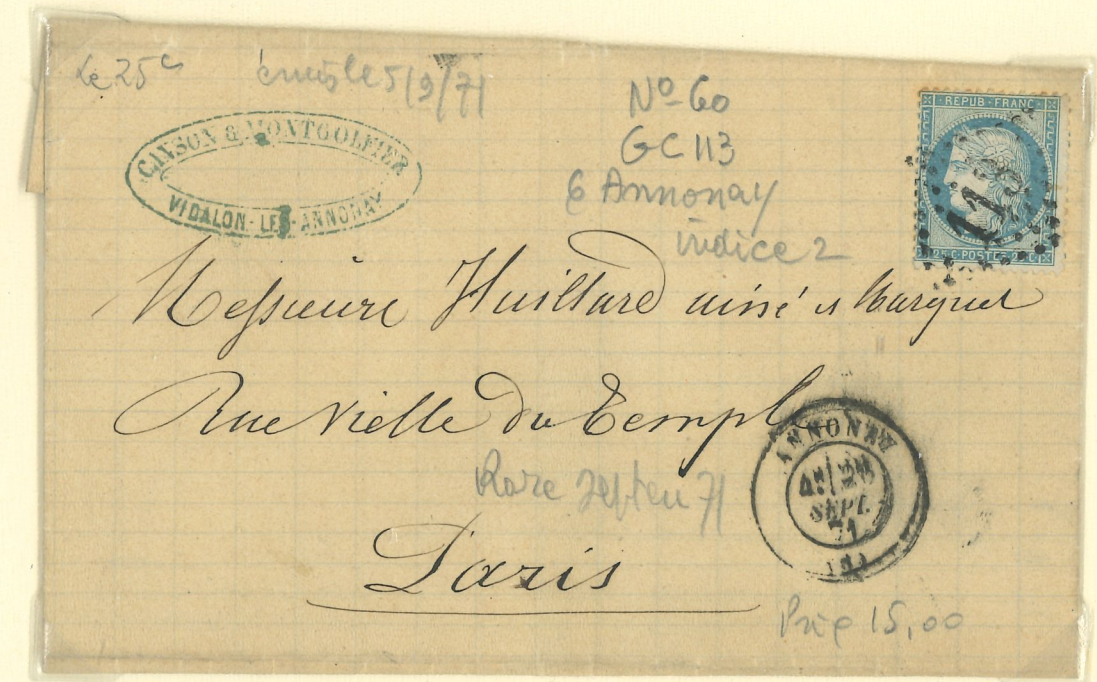 Le 25c émis le 5/9/71
CANSON & MONTGOLFIER
VIDALON-LES-ANNONAY
No 60
GC 113
6 Annonay
indice 2
REPUB·FRANC
113
25 C·POSTE
Messieurs Huillard ainé et Marquet
Rue Vielle du Temple
Rare septem 71
Paris
ANNONAY
28
SEPT.
71
Prix 15,00